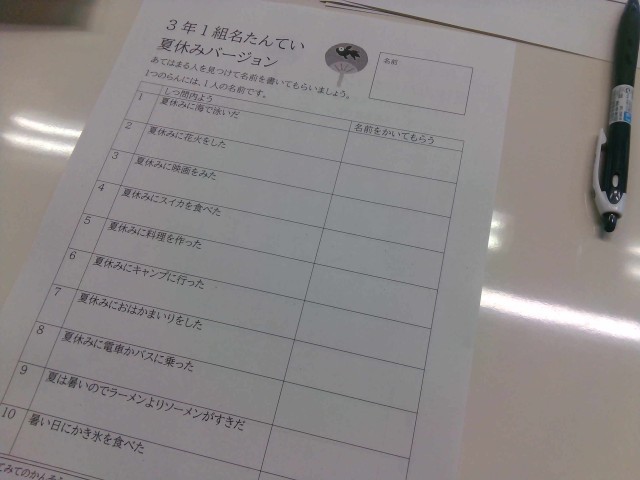 3年1組名たんてい
夏休みバージョン
あてはまる人を見つけて名前を書いてもらいましょう。
1つのらんには、1人の名前です。
名前
しつ問内よう
名前をかいてもらう
1 夏休みに海で泳いだ
2 夏休みに花火をした
3 夏休みに映画をみた
4 夏休みにスイカを食べた
5 夏休みに料理を作った
6 夏休みにキャンプに行った
7 夏休みにおはかまいりをした
8 夏休みに電車かバスに乗った
9 夏は暑いのでラーメンよりソーメンがすきだ
10 暑い日にかき氷を食べた
てみてのかんそう